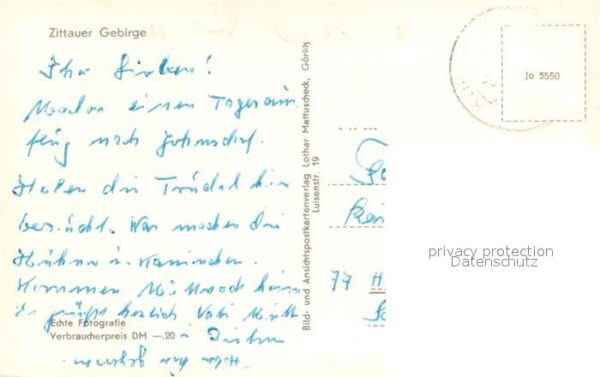 Zittauer Gebirge
Ihr Lieben!
Machen einen Tagesaus
flug nach Johnsdorf.
Haben die Trudel hier
besucht. Was machen die
Hühner u. Kaninchen.
Kommen Mittwoch heim
Es grüßt herzlich Vati Mutti
Echte Fotografie
Verbraucherpreis DM —.20
u.
Haben
Bild- und Ansichtspostkartenverlag Lothar Mattuscheck, Görlitz
Luisenstr. 19
Jo 5550
77 H
privacy protection
Datenschutz